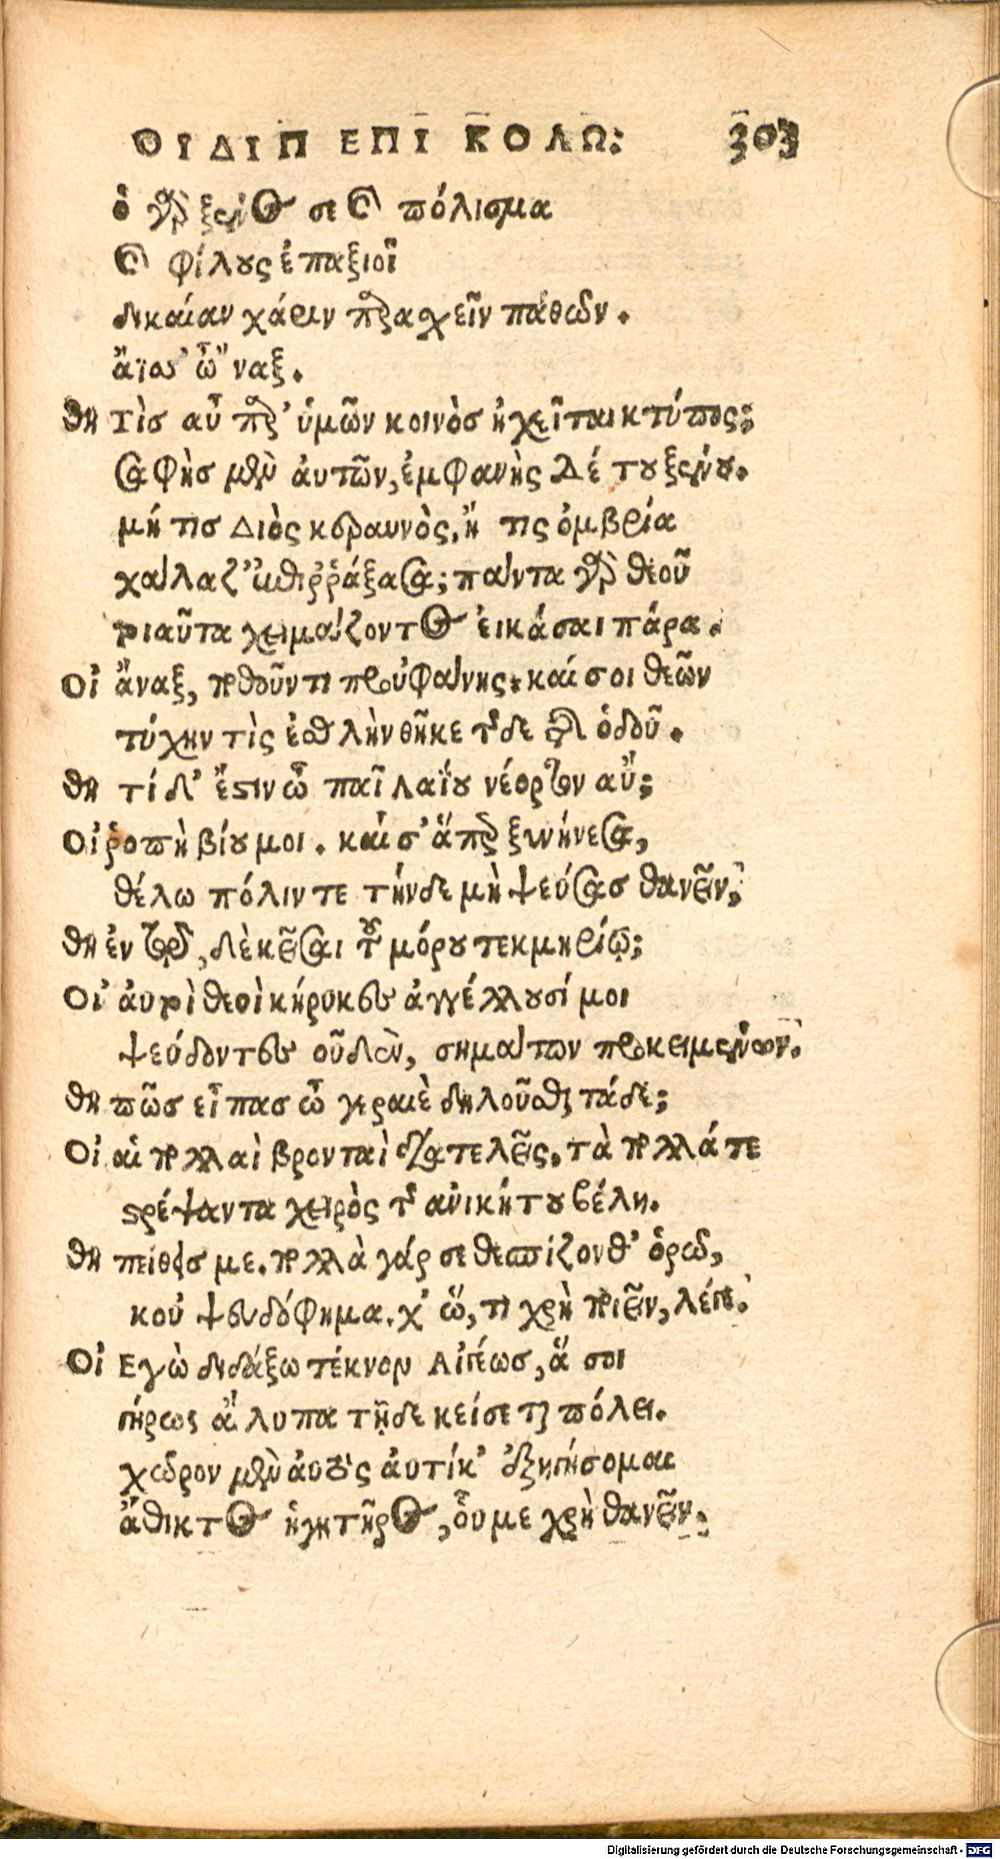 ΟΙΔΙΠ ΕΠΙ ΚΟΛΩ: 303
ὁ γὰρ ξένος σε καὶ πόλισμα
καὶ φίλους ἐπαξιοῖ
δικαίαν χάριν παρασχεῖν παθών.
ἄϊσσ' ὦ 'ναξ.
θη Τὶς αὖ παρ' ὑμῶν κοινὸς ἠχεῖται κτύπος;
σαφὴς μὲν ἀυτῶν, ἐμφανὴς δέ του ξένου.
μή τις Διὸς κεραυνὸς, ἤ τις ὀμβρία
χάλαζ' ἐπιῤῥάξασα; πάντα γὰρ θεοῦ
τοιαῦτα χειμάζοντος ἐικάσαι πάρα.
Οἰ ἄναξ, ποθοῦντι προὐφάνης. καί σοι θεῶν
τύχην τὶς ἐσθλὴν θῆκε τῆςδε τῆς ὁδοῦ.
θη τί δ' ἔστιν ὦ παῖ λαΐου νέορτον αὖ;
Οἰ ῥοπὴ βίου μοι. καί σ' ἅπερ ξυνήνεσα,
θέλω πόλιν τε τήνδε μὴ ψεύσας θανεῖν.
θη ἐν τῷ δὲ κεῖσαι τοῦ μόρου τεκμηρίῳ;
Οἰ ἀυτοὶ θεοὶ κήρυκες ἀγγέλλουσί μοι
ψεύδοντες οὐδὲν, σημάτων προκειμένων.
θη πῶς εἶπας ὦ γεραιὲ δηλοῦσθαι τάδε;
Οἰ αἱ πολλαὶ βρονταὶ διατελεῖς. τὰ πολλά τε
στρέψαντα χειρὸς τῆς ἀνικήτου βέλη.
θη πείθεις με. πολλὰ γάρ σε θεσπίζονθ' ὁρῶ,
κοὐ ψευδόφημα. χ' ὥ, τι χρὴ ποιεῖν, λέγε.
Οἰ Εγὼ διδάξω τέκνον Αἰγέως, ἅ σοι
γήρως ἄλυπα τῇδε κείσεται πόλει.
χῶρον μὲν ἀυτὸς ἀυτίκ' ἐξηγήσομαι
ἄθικτος ἡγητῆρος, οὗ με χρὴ θανεῖν.
Digitalisierung gefördert durch die Deutsche Forschungsgemeinschaft - DFG